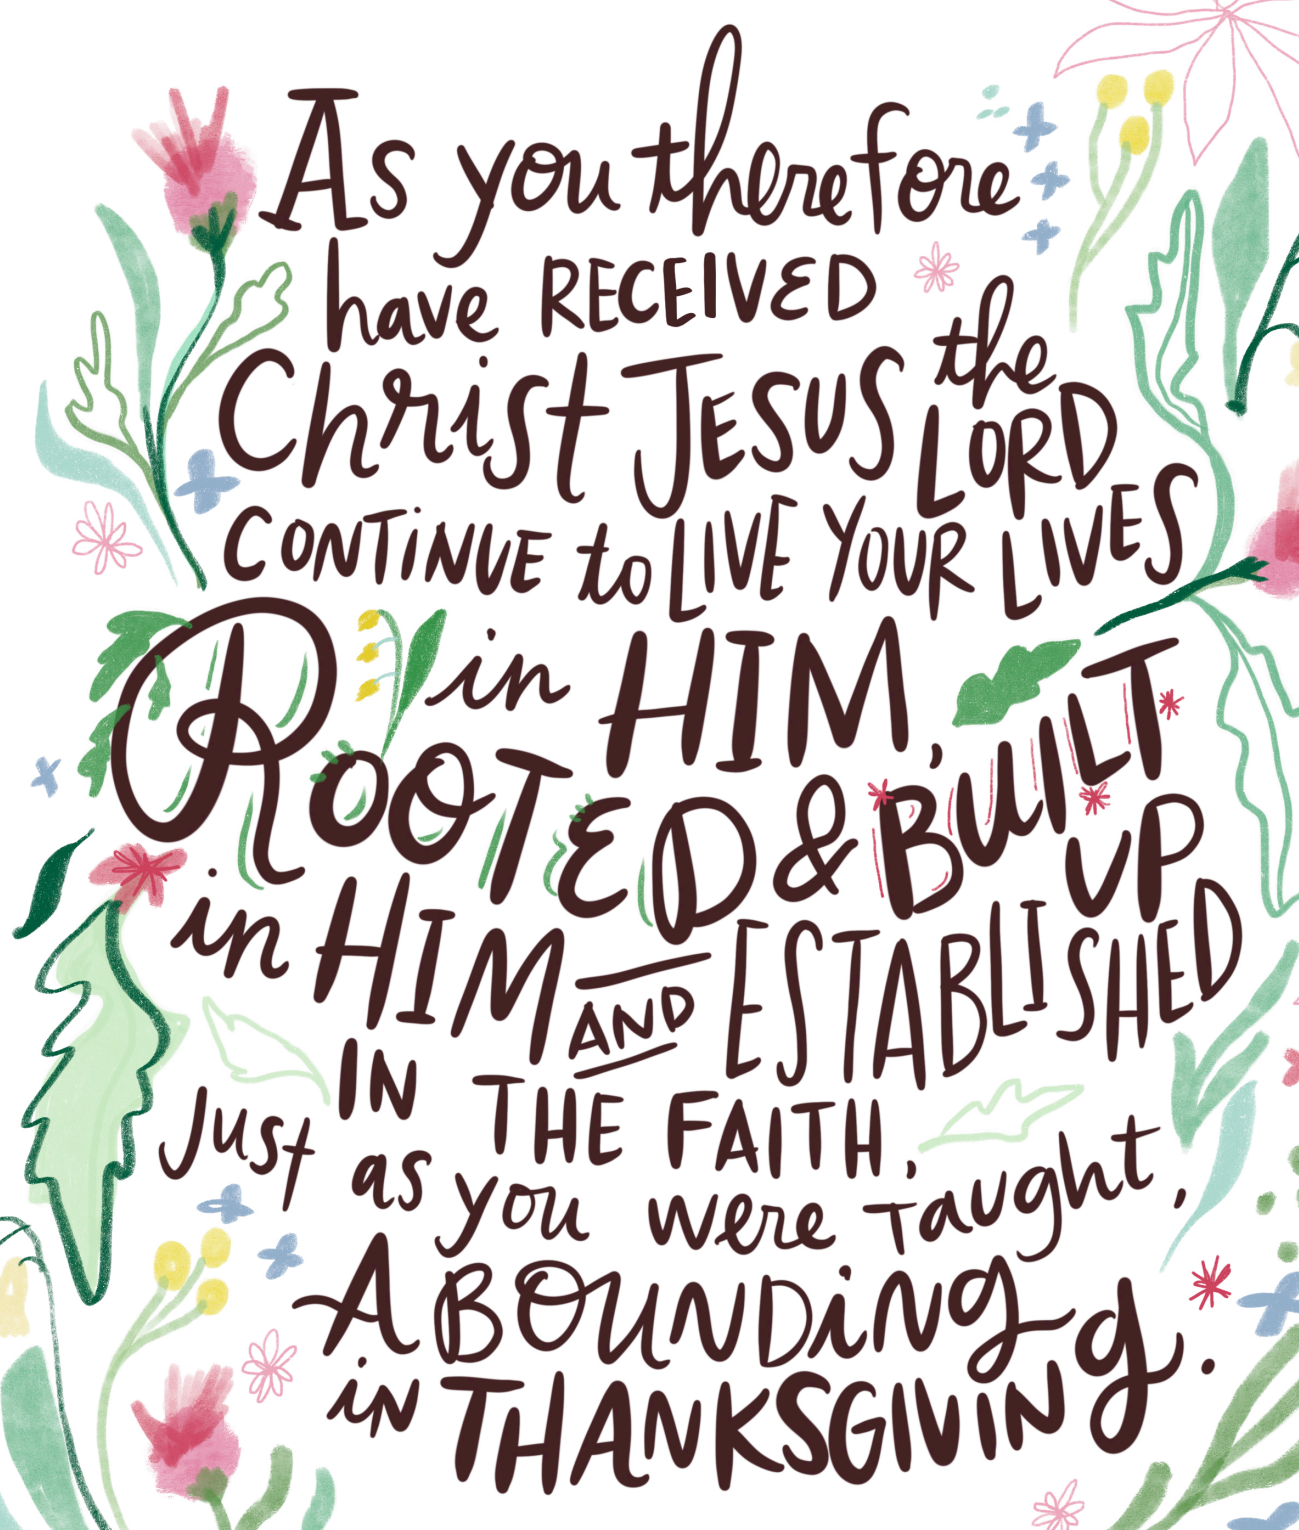 As you therefore
have RECEIVED
Christ JESUS the LORD
CONTINUE to LIVE YOUR LIVES
in HIM,
ROOTED & BUILT UP
in HIM AND ESTABLISHED
IN THE FAITH,
Just as you were taught,
ABOUNDING
in THANKSGIVING.